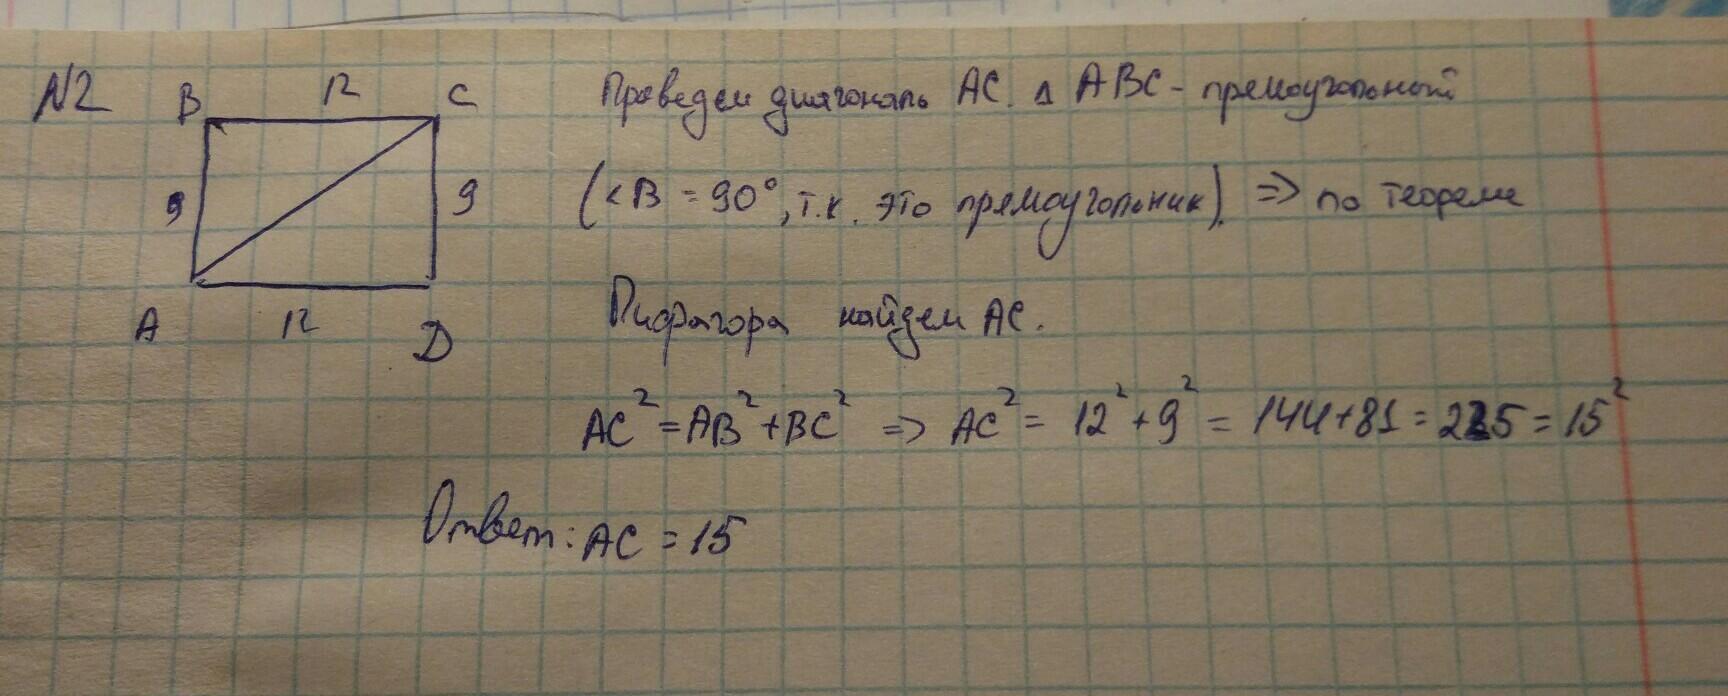 N2
B 12 C
Проведем диагональ AC. Δ ABC - прямоугольный
9 9
(<B = 90°, т.к. это прямоугольник). => по теореме
A 12 D
Пифагора найдем AC.
AC² = AB² + BC² => AC² = 12² + 9² = 144 + 81 = 225 = 15²
Ответ: AC = 15